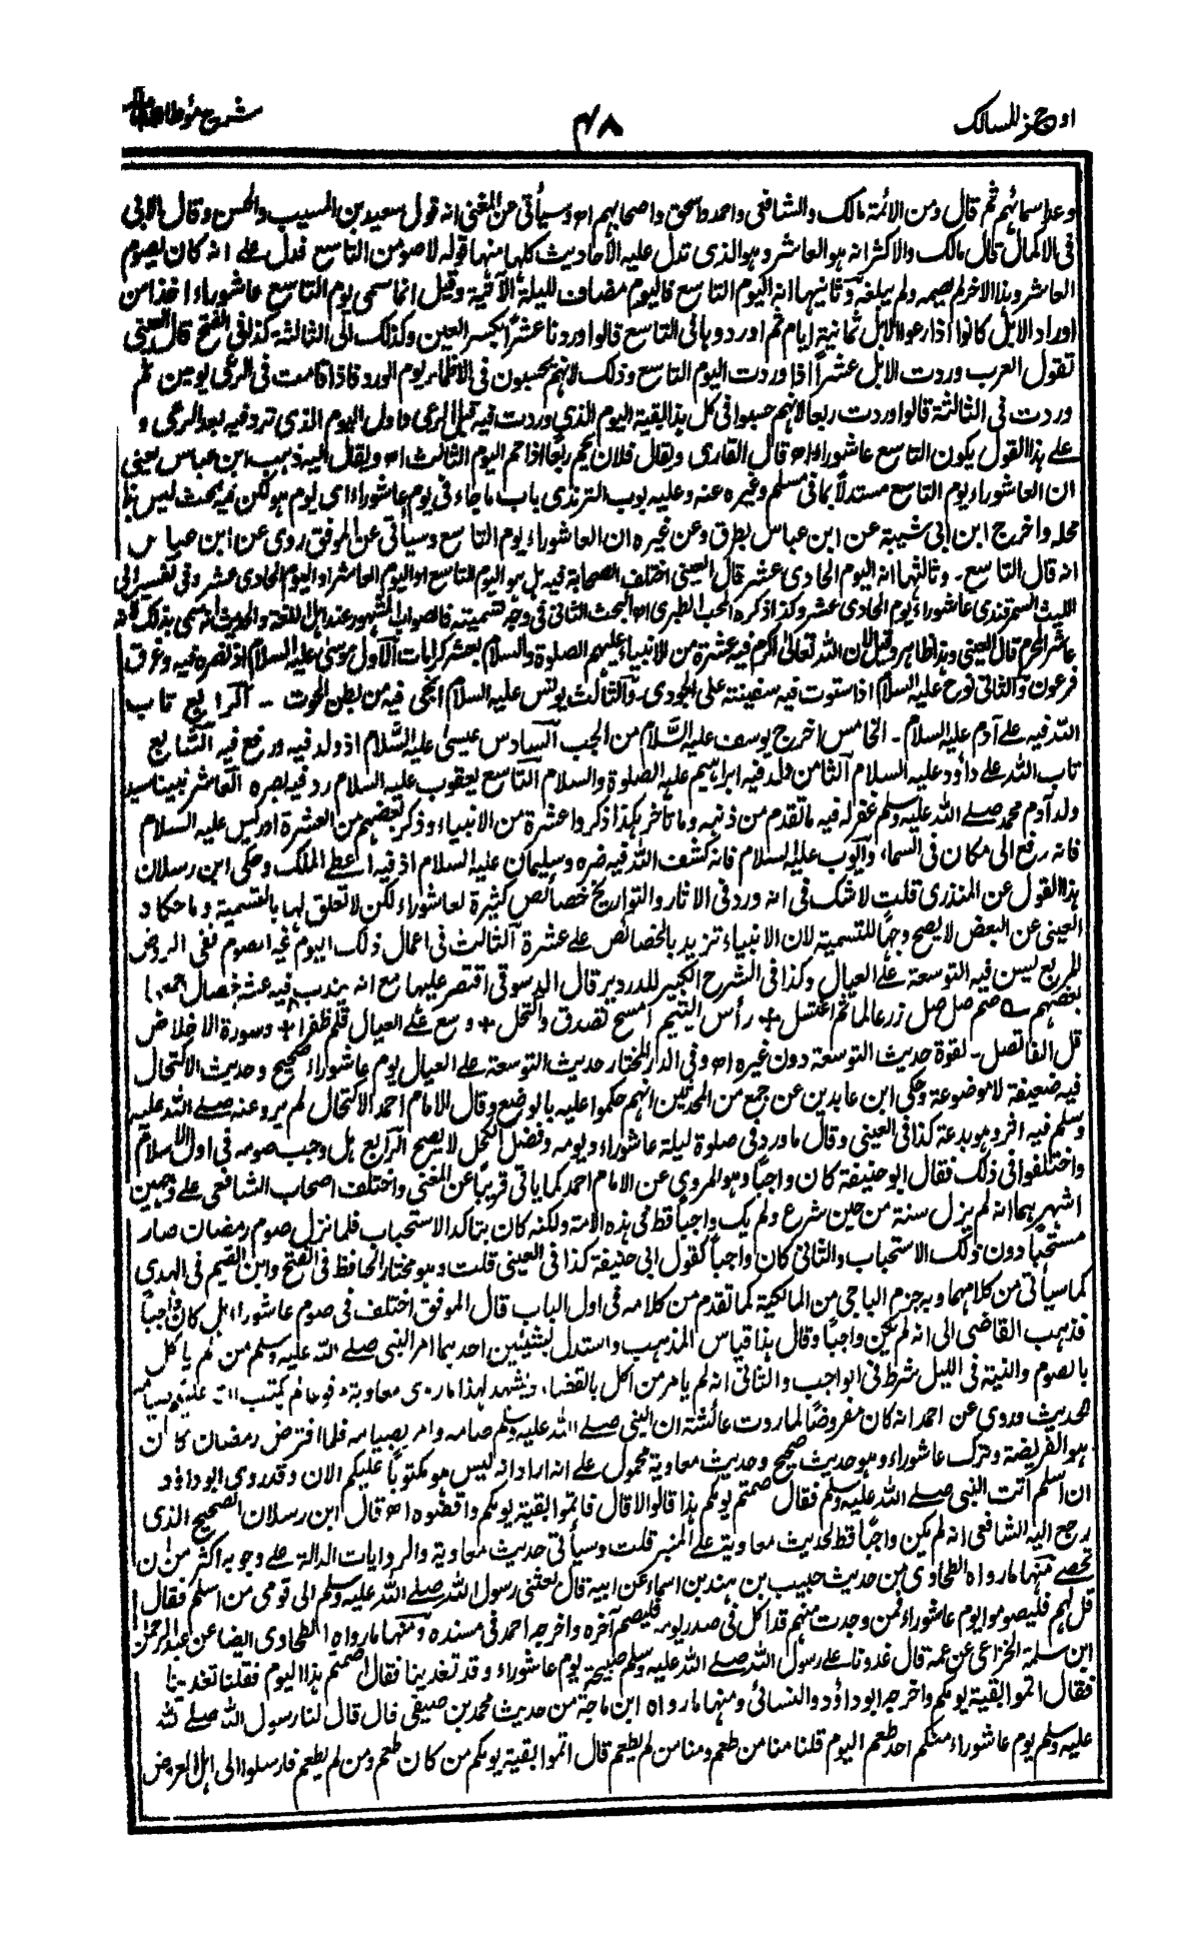 اوجز المسالك
۴۸
شرح موطا
وعد اسمائهم ثم قال ومن الائمة مالك والشافعى واحمد واسحق واصحابهم اھ وسيأتى عن المغنى انه قول سعيد بن المسيب والحسن وقال الابى
فى الاكمال قال مالك والاكثر انه هو العاشر وهو الذى تدل عليه الأحاديث كلها منها قوله لاصومن التاسع فدل على انه كان يصوم
العاشر وهذا الاخر لم يصمه ولم يبلغه وثانيها انه اليوم التاسع فاليوم مضاف لليلة الآتية وقيل انما سمى يوم التاسع عاشوراء اخذا من
اوراد الابل كانوا اذا رعوا الابل ثمانية ايام ثم اوردوها فى التاسع قالوا وردنا عشرًا بكسر العين وكذلك الى الثالثة كذا فى الفتح قال العينى
تقول العرب وردت الابل عشرًا اذا وردت اليوم التاسع وذلك لانهم يحسبون فى الاظماء يوم الورد فاذا قامت فى الرعى يومين ثم
وردت فى الثالثة قالوا وردت ربعا لانهم حسبوا فى كل هذا بقية اليوم الذى وردت فيه قبل الرعى واول اليوم الذى ترد فيه بعد الرعى و
على هذا القول يكون التاسع عاشوراء اھ قال القارى ويقال فلان يحم ربعًا اذا حم اليوم الثالث اھ ويقال اليه ذهب ابن عباس يعنى
ان العاشوراء يوم التاسع مستدلًا بما فى مسلم وغيره عنه وعليه بوب الترمذى باب ما جاء فى يوم عاشوراء اى يوم هو لكن فيه بحث ليس هذا
محله واخرج ابن ابى شيبة عن ابن عباس بطرق وعن غيره ان العاشوراء يوم التاسع وسيأتى عن الموفق روى عن ابن عباس
انه قال التاسع۔ وثالثها انه اليوم الحادى عشر قال العينى اختلف الصحابة فيه هل هو اليوم التاسع او اليوم العاشر او اليوم الحادى عشر وفى تفسير ابى
الليث السمرقندى عاشوراء يوم الحادى عشر وكذا ذكره المحب الطبرى اھ البحث الثانى فى وجه تسميته فالصواب المشهور عند اهل اللغة والحديث انه سمى بذلك لانه
عاشر المحرم قال العينى وهذا ظاهر وقيل لان الله تعالى اكرم فيه عشرة من الانبياء عليهم الصلوة والسلام بعشر كرامات الاول موسى عليه السلام اذ نصره فيه وغرق
فرعون والثانى نوح عليه السلام اذ استوت فيه سفينته على الجودى۔ والثالث يونس عليه السلام انجى فيه من بطن الحوت -- الرابع تاب
الله فيه على آدم عليه السلام۔ الخامس اخرج يوسف عليه السلام من الجب السادس عيسى عليه السلام اذ ولد فيه ورفع فيه السابع
تاب الله على داؤد عليه السلام الثامن ولد فيه ابراهيم عليه الصلوة والسلام التاسع يعقوب عليه السلام رد فيه بصره العاشر نبينا سيد
ولد آدم محمد صلى الله عليه وسلم غفر له فيه ما تقدم من ذنبه وما تأخر هكذا ذكروا عشرة من الانبياء وذكر بعضهم من العشرة ادريس عليه السلام
فانه رفع الى مكان فى السماء وايوب عليه السلام فانه كشف الله فيه ضره وسليمان عليه السلام اذ فيه اعطى الملك وحكى ابن رسلان
هذا القول عن المنذرى قلت لا شك فى انه ورد فى الاثار والتواريخ خصائص كثيرة لعاشوراء لكن لا تعلق لها بالتسمية وما حكاه
العينى عن البعض لا يصح وجهًا للتسمية لان الانبياء تزيد بالخصائص على عشرة الثالث فى اعمال ذلك اليوم غير الصوم ففى الروض
المربع ليس فيه التوسعة على العيال وكذا فى الشرح الكبير للدردير قال الدسوقى اقتصر عليها مع انه يندب فيه عشر خصال جمعها
بعضهم ے صم صل صل زر عالما ثم اغتسل + رأس اليتيم امسح تصدق واكتحل + وسع على العيال قلم ظفرا + وسورة الاخلاص
قل الفا تصل۔ لقوة حديث التوسعة دون غيره اھ وفى الدر المختار حديث التوسعة على العيال يوم عاشوراء صحيح وحديث الاكتحال
فيه ضعيفة لا موضوعة وحكى ابن عابدين عن جمع من المحدثين انهم حكموا عليه بالوضع وقال الامام احمد الاكتحال لم يرو عنه صلى الله عليه
وسلم فيه اثر وهو بدعة كذا فى العينى وقال ما ورد فى صلوة ليلة عاشوراء ويومه وفضل الكحل لا يصح الرابع هل وجب صومه فى اول الاسلام
واختلفوا فى ذلك فقال ابو حنيفة كان واجبا وهو المروى عن الامام احمد كما ياتى قريبًا عن المغنى واختلف اصحاب الشافعى على وجهين
اشهرهما انه لم يزل سنة من حين شرع ولم يك واجبًا قط فى هذه الامة ولكنه كان يتاكد الاستحباب فلما نزل صوم رمضان صار
مستحبًا دون ذلك الاستحباب والثانى كان واجبا كقول ابى حنيفة كذا فى العينى قلت وهو مختار الحافظ فى الفتح وابن القيم فى الهدى
كما سيأتى من كلامهما وبه جزم الباجى من المالكية كما تقدم من كلامه فى اول الباب قال الموفق اختلف فى صوم عاشوراء هل كان واجبًا
فذهب القاضى الى انه لم يكن واجبًا وقال هذا قياس المذهب واستدل بشيئين احدهما امر النبى صلى الله عليه وسلم من لم ياكل
بالصوم والنية فى الليل شرط فى الواجب والثانى انه لم يامر من اكل بالقضاء ويشهد لهذا ما روى معاوية مرفوعا لم يكتب الله عليكم صيامه
الحديث وروى عن احمد انه كان مفروضًا لما روت عائشة ان النبى صلى الله عليه وسلم صامه وامر بصيامه فلما افترض رمضان كان
هو الفريضة وترك عاشوراء وهو حديث صحيح وحديث معاوية محمول على انه اراد انه ليس هو مكتوبًا عليكم الان وقد روى ابو داؤد
ان اسلم اتت النبى صلى الله عليه وسلم فقال صمتم يومكم هذا قالوا لا قال فاتموا بقية يومكم واقضوه اھ قال ابن رسلان الصحيح الذى
رجع اليه الشافعى انه لم يكن واجبًا قط لحديث معاوية على المنبر قلت وسيأتى حديث معاوية والروايات الدالة على وجوبه اكثر من ان
تحصى منها ما رواه الطحاوى من حديث حبيب بن هند بن اسماء عن ابيه قال بعثنى رسول الله صلى الله عليه وسلم الى قومى من اسلم فقال
قل لهم فليصوموا يوم عاشوراء فمن وجدت منهم قد اكل فى صدر يومه فليصم آخره واخرجه احمد فى مسنده ومنها ما رواه الطحاوى ايضا عن عبد الرحمن
ابن سلمة الخزاعى عن عمه قال غدونا على رسول الله صلى الله عليه وسلم صبيحة يوم عاشوراء وقد تغدينا فقال اصمتم هذا اليوم فقلنا تغدينا
فقال اتموا بقية يومكم واخرجه ابو داؤد والنسائى ومنها ما رواه ابن ماجة من حديث محمد بن صيفى قال قال لنا رسول الله صلى الله
عليه وسلم يوم عاشوراء منكم احد طعم اليوم قلنا منا من طعم ومنا من لم يطعم قال اتموا بقية يومكم من كان طعم ومن لم يطعم فارسلوا الى اهل العروض